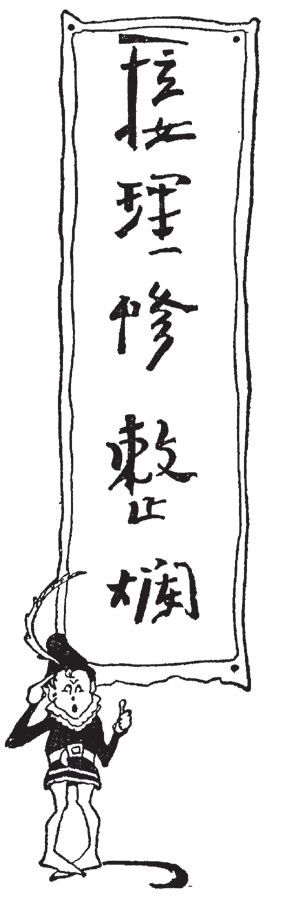 接理修整爛